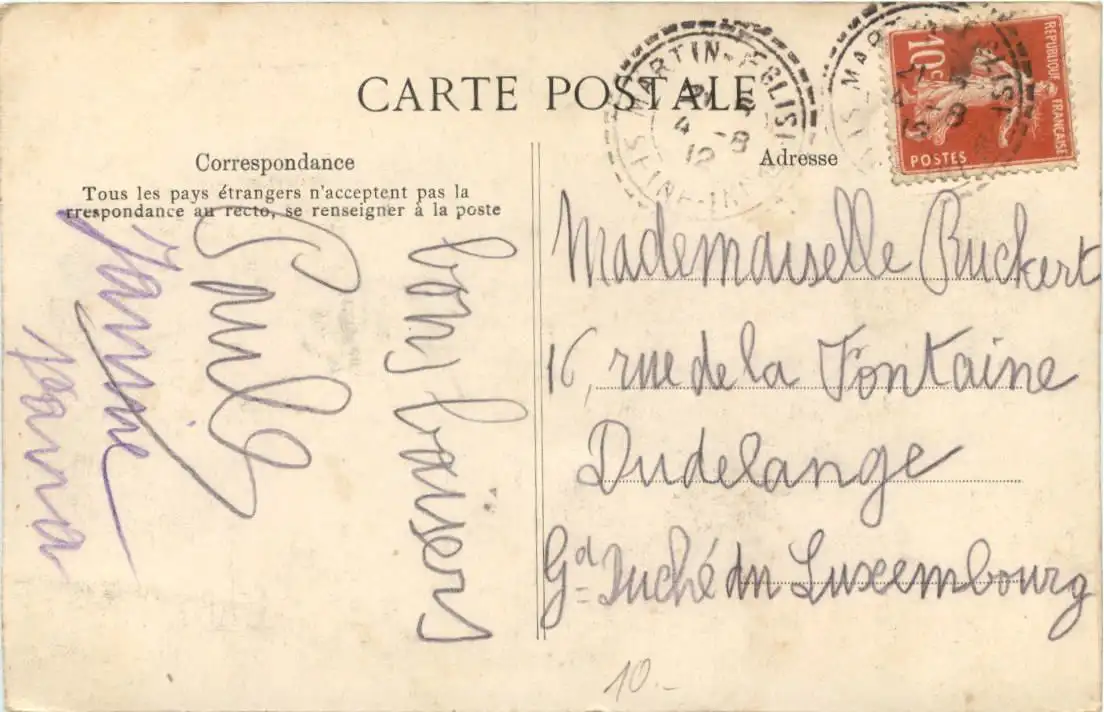 CARTE POSTALE
Correspondance
Tous les pays étrangers n'acceptent pas la
rrespondance au recto, se renseigner à la poste
bons baisers
Paul
Jeanne
Adresse
Mademoiselle Ruckert
16, rue de la Fontaine
Dudelange
Gd Duché du Luxembourg
10.-
MARTIN-EGLISE
4 -8
12
REPUBLIQUE FRANCAISE
10c
POSTES